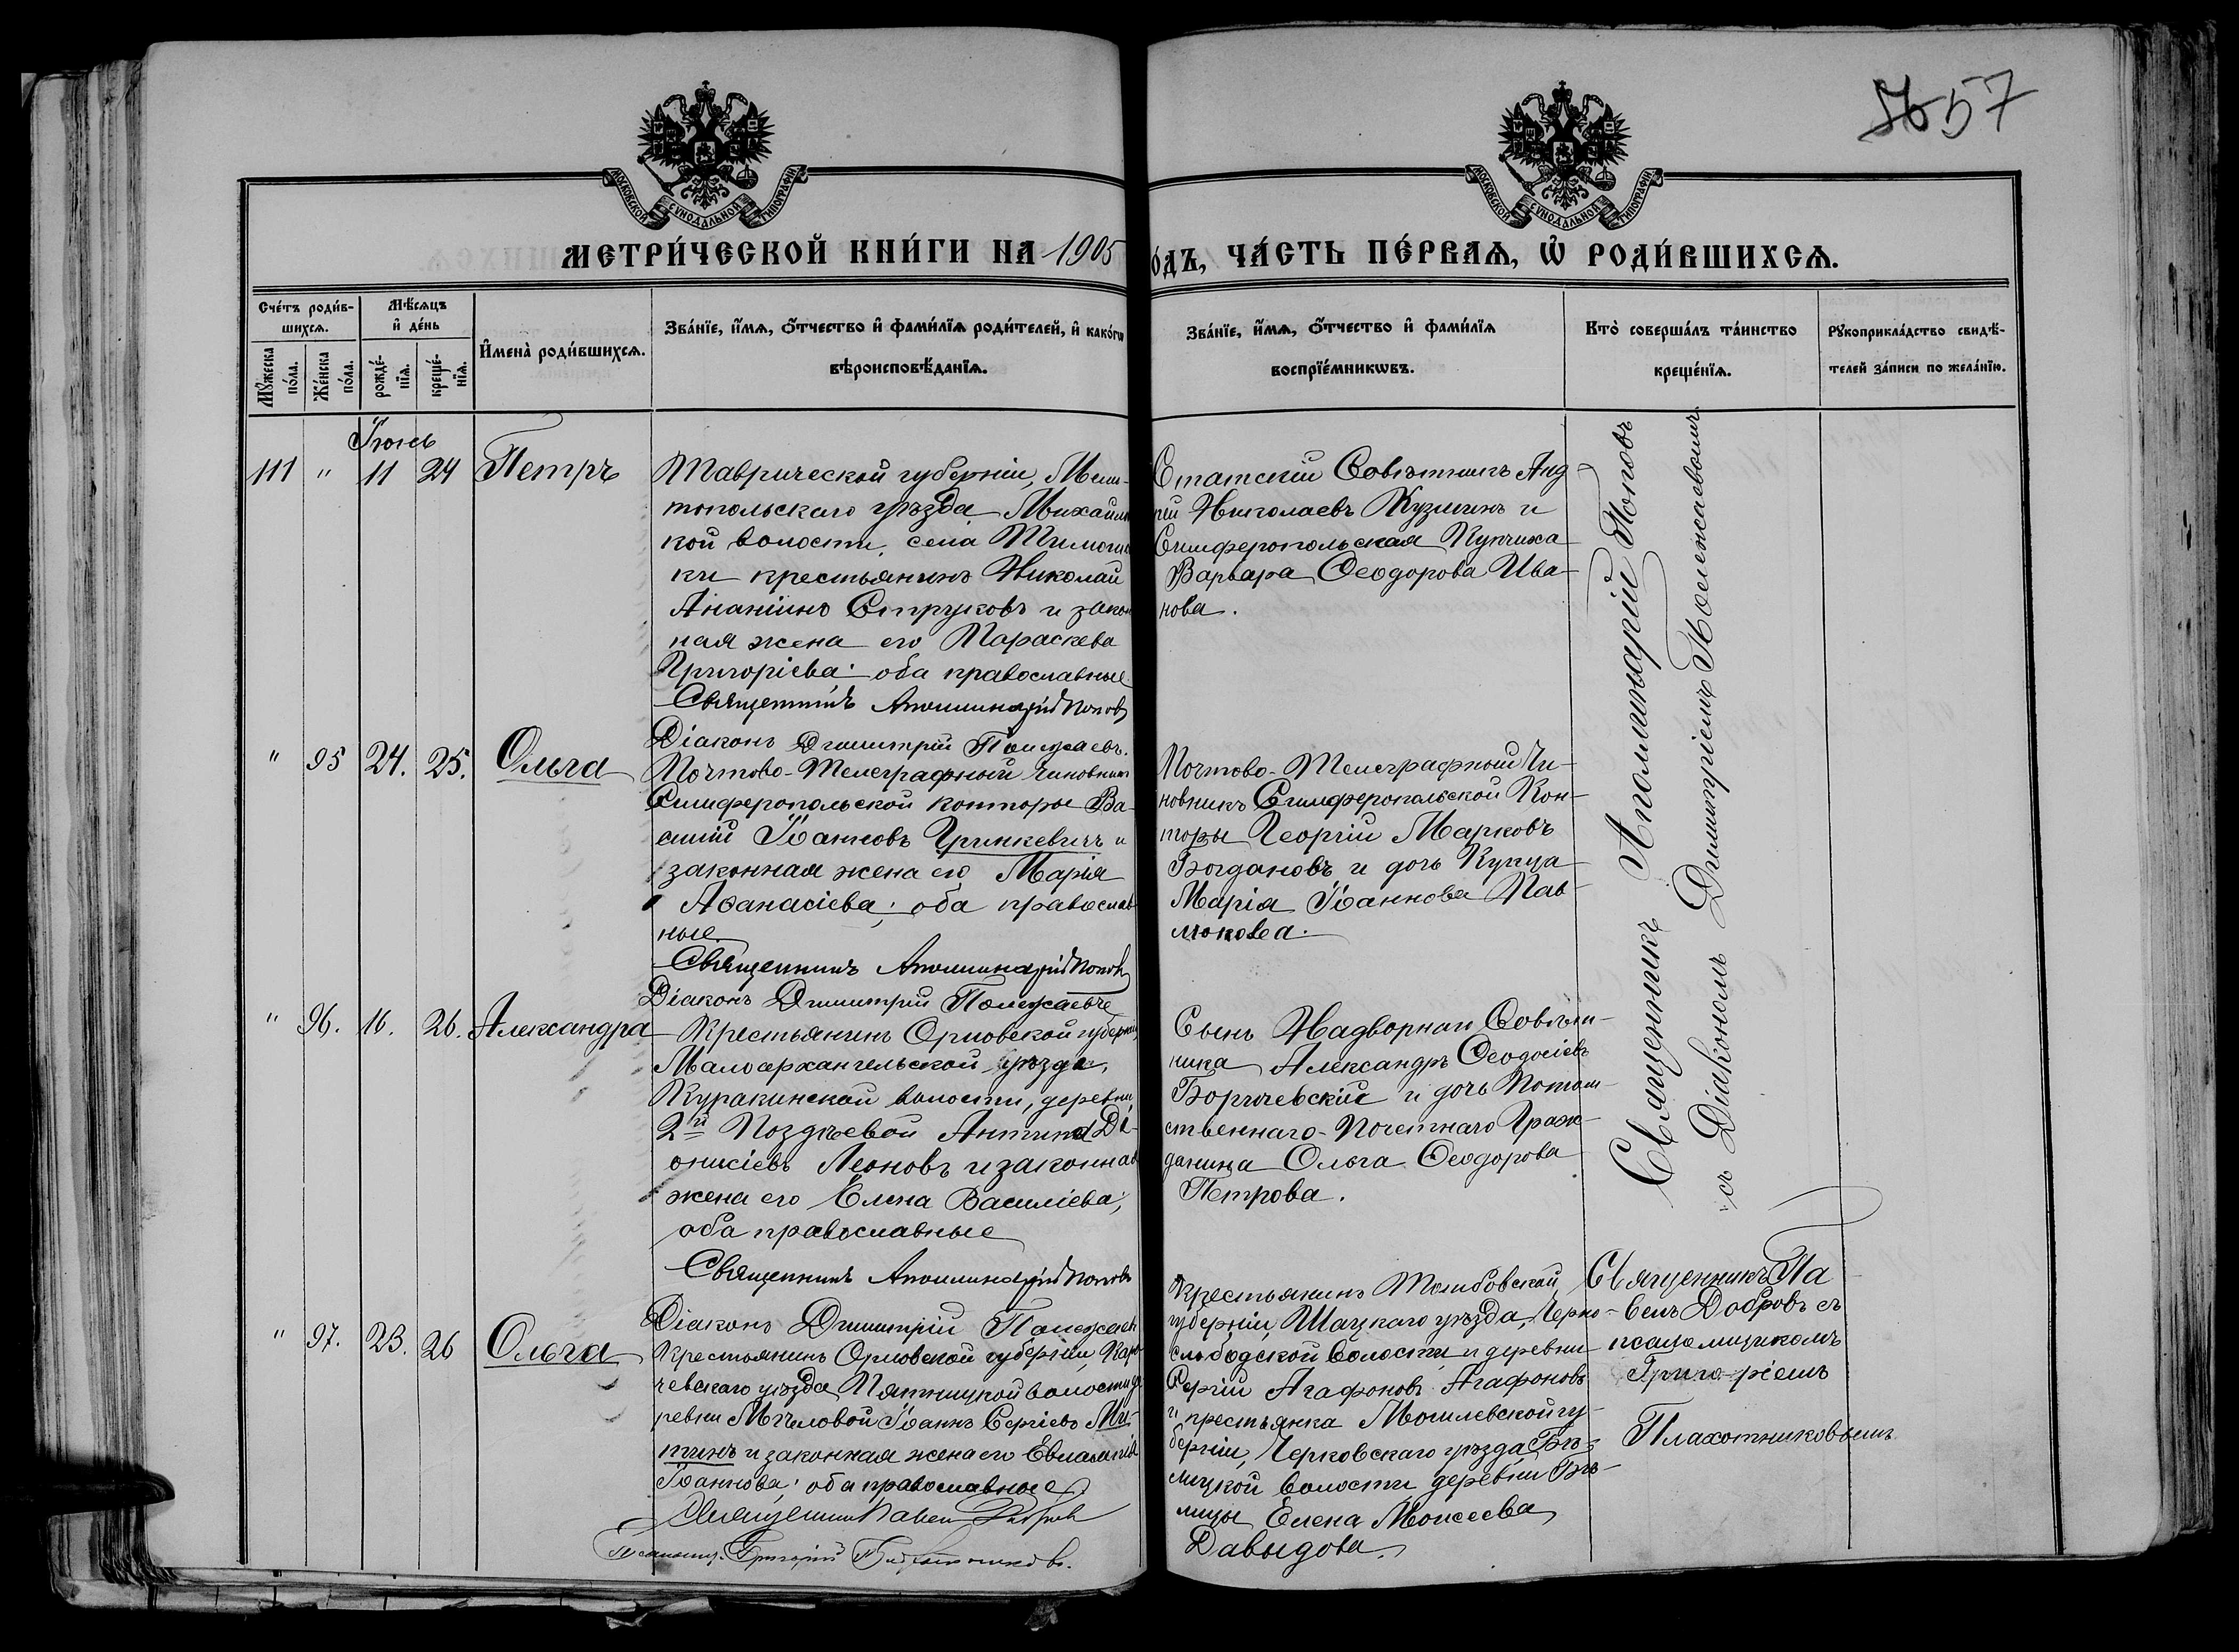 57
МОСКОВСКОЙ СѴНОДАЛЬНОЙ ТИПОГРАФІИ
МОСКОВСКОЙ СѴНОДАЛЬНОЙ ТИПОГРАФІИ
МЕТРИ́ЧЕСКОЙ КНИ́ГИ НА 1905
О́ДЪ, ЧА́СТЬ ПЕ́РВАѦ, Ѡ РОДИ́ВШИХСѦ.
Сче́тъ роди́в-
шихсѧ.
Мꙋ́жеска
по́ла.
Же́нска
по́ла.
Мѣ́сѧцъ
и҆ де́нь
рожде́-
нїѧ.
креще́-
нїѧ.
И҆мена̀ роди́вшихсѧ.
Зва́нїе, и҆́мѧ, ѻ҆́тчество и҆ фами́лїѧ роди́телей, и҆ како́гѡ
вѣроисповѣ́данїѧ.
Зва́нїе, и҆́мѧ, ѻ҆́тчество и҆ фами́лїѧ
воспрїе́мникѡвъ.
Кто̀ соверша́лъ та́инство
креще́нїѧ.
Рꙋкоприкла́дство свидѣ́-
телей за́писи по жела́нїю.
Іюнь
111 " 11 24 Петръ
Таврической губерніи, Мели-
топольскаго уѣзда Михайлов
кой волости, села Тимошев
ки крестьянинъ Николай
Ананіинъ Струковъ и закон
ная жена его Параскева
Григоріева; оба православные
Священникъ Аполлинарій Поповъ
Діаконъ Димитрій Полежаевъ.
Статскій Совѣтникъ Анд
рей Николаевъ Кузминъ и
Симферопольская Купчиха
Варвара Ѳеодорова Ива-
нова.
Священникъ Аполлинарій Поповъ
съ Діакономъ Димитріемъ Полежаевымъ.
" 95 24. 25. Ольга
Почтово-Телеграфный чиновникъ
Симферопольской конторы Ва-
силій Іоанновъ Гринкевичъ и
законная жена его Марія
Аѳанасіева; оба православ
ные
Священникъ Аполлинарій Поповъ
Діаконъ Димитрій Полежаевъ
Почтово-Телеграфный Чи-
новникъ Симферопольской Кон-
торы Георгій Марковъ
Богдановъ и дочь Купца
Марія Іоаннова Пав-
люкова.
" 96. 16. 26. Александра
Крестьянинъ Орловской губерніи
Малоархангельской уѣзда,
Куракинской волости, деревни
2й Поздѣевой Антипа Ді-
онисіевъ Леоновъ и законная
жена его Елена Василіева;
оба православные
Священникъ Аполлинарій Поповъ
Діаконъ Димитрій Полежаевъ
Сынъ Надворнаго Совѣт-
ника Александръ Ѳеодосіевъ
Боричевскій и дочь Потом-
ственнаго-Почетнаго Граж-
данина Ольга Ѳеодорова
Петрова.
" 97. 23. 26 Ольга
Крестьянинъ Орловской губерніи, Кара-
чевскаго уѣзда Пятницкой волости де
ревни Мыловой Іоаннъ Сергіевъ Ми-
тинъ и законная жена его Евлампія
Іоаннова; оба православные
Священникъ Павелъ Добровъ
Псаломщ. Григорій Плахотниковъ.
Крестьянинъ Тамбовской
губерніи, Шацкаго уѣзда, Черно-
слободской волости и деревни
Сергій Агафоновъ Агафоновъ
и крестьянка Могилевской гу-
берніи, Чериковскаго уѣзда, Бѣ-
лицкой волости деревни Бѣ-
лицы Елена Моисеева
Давыдова.
Священникъ Па
велъ Добровъ съ
псаломщикомъ
Григоріемъ
Плахотниковымъ